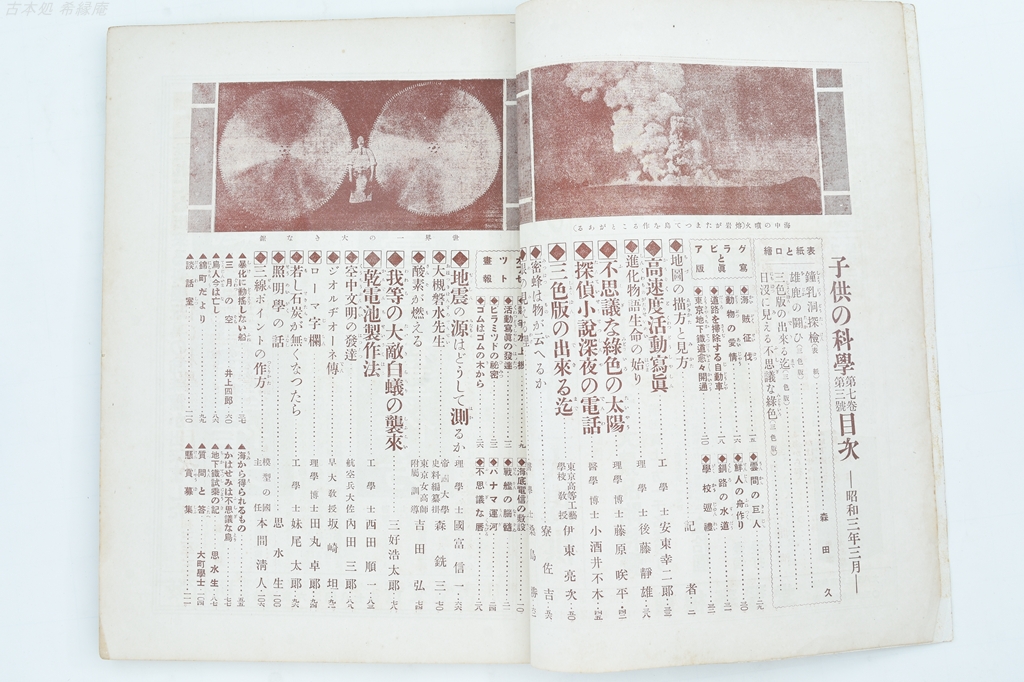 古本処 希縁庵
子供の科學 第七卷 第三號 目次 ―昭和三年三月―
表紙と口繪
鐘乳洞探檢(表紙)
雄鹿の鬪ひ(三色版)
三色版の出來る迄
日沒に見える不思議な綠色(三色版)
森田久
寫眞とグラビア版
海賊征伐
動物の愛情
道路を掃除する自動車
東京地下鐵道愈々開通
雲間の巨人
鮮人の舟作り
釧路の水道
學校巡禮
地圖の描方と見方 記者
高速度活動寫眞 工學士 安東幸二郎
進化物語生命の始り 理學士 後藤靜雄
不思議な綠色の太陽 理學博士 藤原咲平
探偵小說深夜の電話 醫學博士 小酒井不木
三色版の出來る迄 東京高等工藝學校教授 伊東亮次
蜜蜂は物が云へるか 寮佐吉
海中の噴火(熔岩がたまつて島を作ることがある)
世界一の大きな鋸
活動寫眞の發達
ピラミツドの秘密
ゴムはゴムの木から
海底電信の敷設
戰艦の腦髓
パナマ運河
不思議な曆
地震の源はどうして測るか 理學士 國富信一
大槻磐水先生 森銑三
酸素が燃える 東京女高師附屬訓導 吉田弘
我等の大敵白蟻の襲來 三好浩太郎
乾電池製作法 工學士 西田順一
空中文明の發達 航空兵大佐 內田三郎
ジオルヂオーネ傳 早大教授 坂崎坦
ローマ字欄 理學博士 田丸卓郎
若し石炭が無くなつたら 工學士 妹尾太郎
照明學の話 思水生
三線ポイントの作方 模型の國主任 本間淸人
暴化に動搖しない船
三月の空 井上四郎
鳥人今は亡し
錦町だより
談話室
海から得られるもの
かはせみは不思議な鳥
地下鐵試乘の記 思水生
質問と答 大町學士
懸賞募集